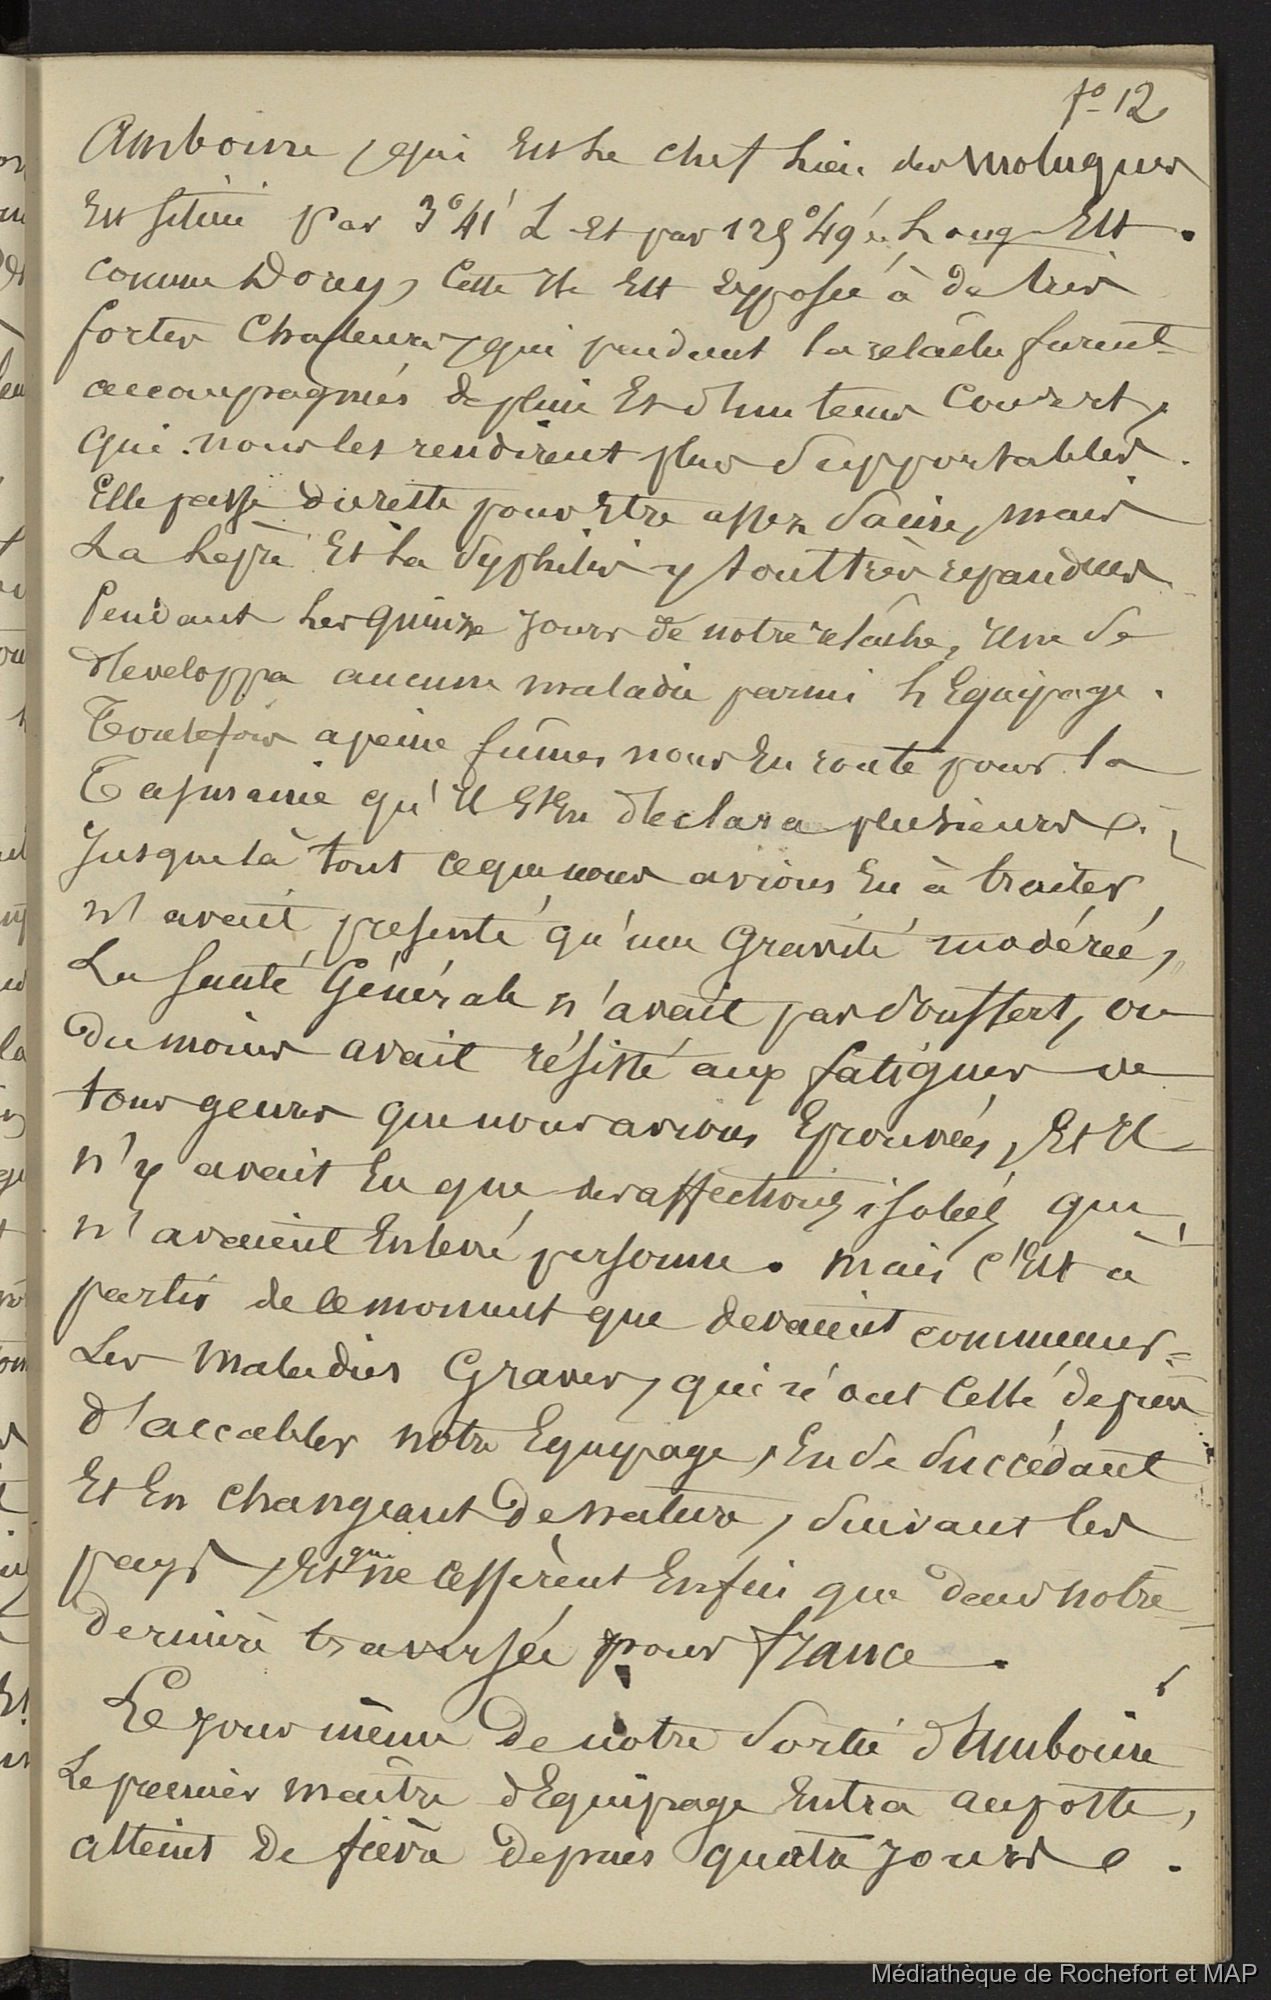 fo 12
Amboine, qui est le chef lieu des moluques
est situé par 3°41' L et par 125°49' Long Est.
comme Dorey, cette ile est exposée à de très
fortes chaleurs, qui pendant la relâche furent
accompagnés de pluie et d'un tems couvert,
qui nous les rendirent plus supportables.
Elle passe du reste pour être assez saine, mais
La lèpre et la syphilis y sont très repandues.
Pendant les quinze jours de notre relâche, il ne se
developpa aucune maladie parmi l'Equipage.
Toutefois a peine fûmes nous en route pour la
Tasmanie qu'il s'en declara plusieurs.
Jusque là tout ce que nous avions eu à traiter
n'avait présenté qu'une gravité modérée,
La santé Générale n'avait pas souffert, ou
du moins avait résisté aux fatigues de
tous genres que nous avions eprouvées, et il
n'y avait eu que des affections isolées qui
n'avaient enlevé personne. mais c'est à
partir de ce moment que devaient commencer
Les maladies Graves, qui n'ont cessé depuis
d'accabler notre Equipage, en se succédant
et en changeant de nature, suivant les
pays, et qui ne cessèrent enfin que dans notre
dernière traversée pour france.
Le jour même de notre sortie d'Amboine
Le premier maître d'Equipage entra au poste,
atteint de fièvre depuis quatre jours.
Médiathèque de Rochefort et MAP